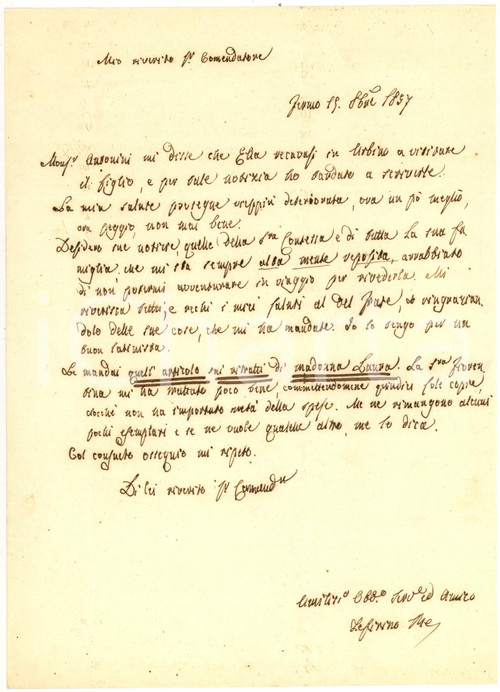 Mio riverito Sr. Comendatore
Fermo 15. 8bre 1857
Monsr. Antonini mi disse che Ella recavasi in Urbino a visitare
il figlio, e per tale notizia ho tardato a scriverle.
La mia salute prosegue sempre deteriorata, ora un pò meglio,
ora peggio, non mai bene.
Desidero sue notizie, quelle della Sra Contessa e di tutta la sua fa
miglia, che mi sta sempre alta mente reposita, arrabbiato
di non potermi avventurare in viaggio per rivederla. Mi
riverisca tutti, e rechi i miei saluti al del ringrazian
dolo delle sue cose, che mi ha mandate. Io lo tengo per un
buon latinista.
Le mandai quell' articolo sui ritratti di madonna Laura. La Sra Fioren
tina mi ha trattato poco bene, commettendomene quindici sole copie,
cosichè non ha importato metà della spesa. Me ne rimangono alcuni
pochi esemplari e se ne vuole qualche altro, me lo dica.
Col consueto ossequio mi ripeto.
Di lei riverito Sr. Comendr
Umilmo Obbmo Servre ed Amico
Zefirino Re